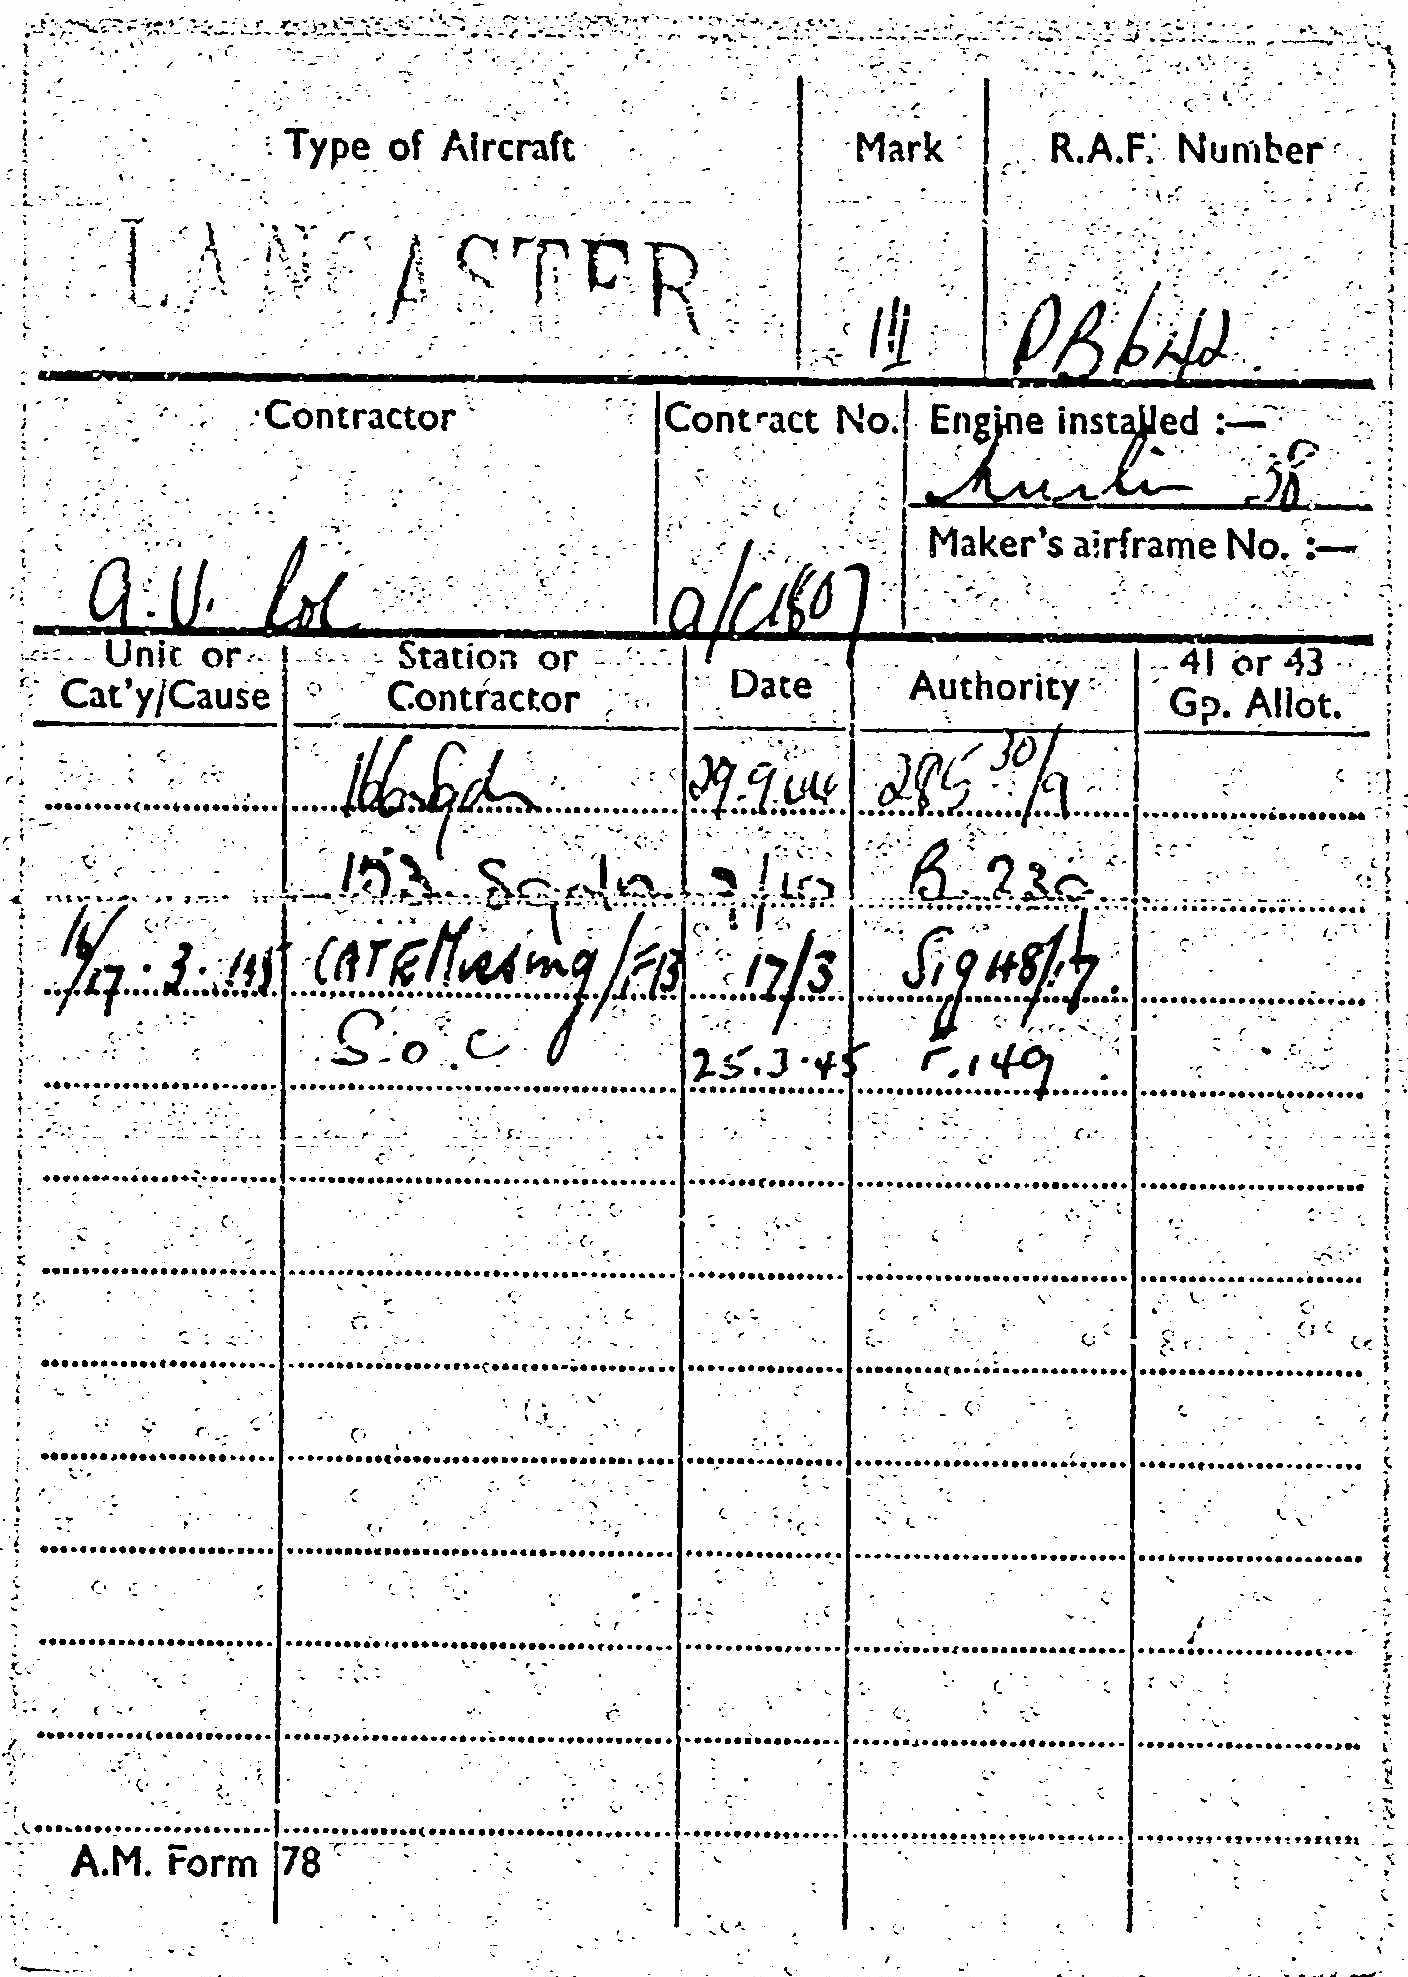 Type of Aircraft Mark R.A.F. Number
LANCASTER III PB642
Contractor Contract No. Engine installed :—
Merlin 38
Maker's airframe No. :—
A.V. Roe a/c1807
Unit or Station or Date Authority 41 or 43
Cat'y/Cause Contractor Gp. Allot.
166 Sqdn 29.9.44 285 30/9
153 Sqdn 7/10 B.230
16/17.3.45 CAT E Missing/FB 17/3 Sig H8/17.
S.O.C 25.3.45 F.149
A.M. Form 78